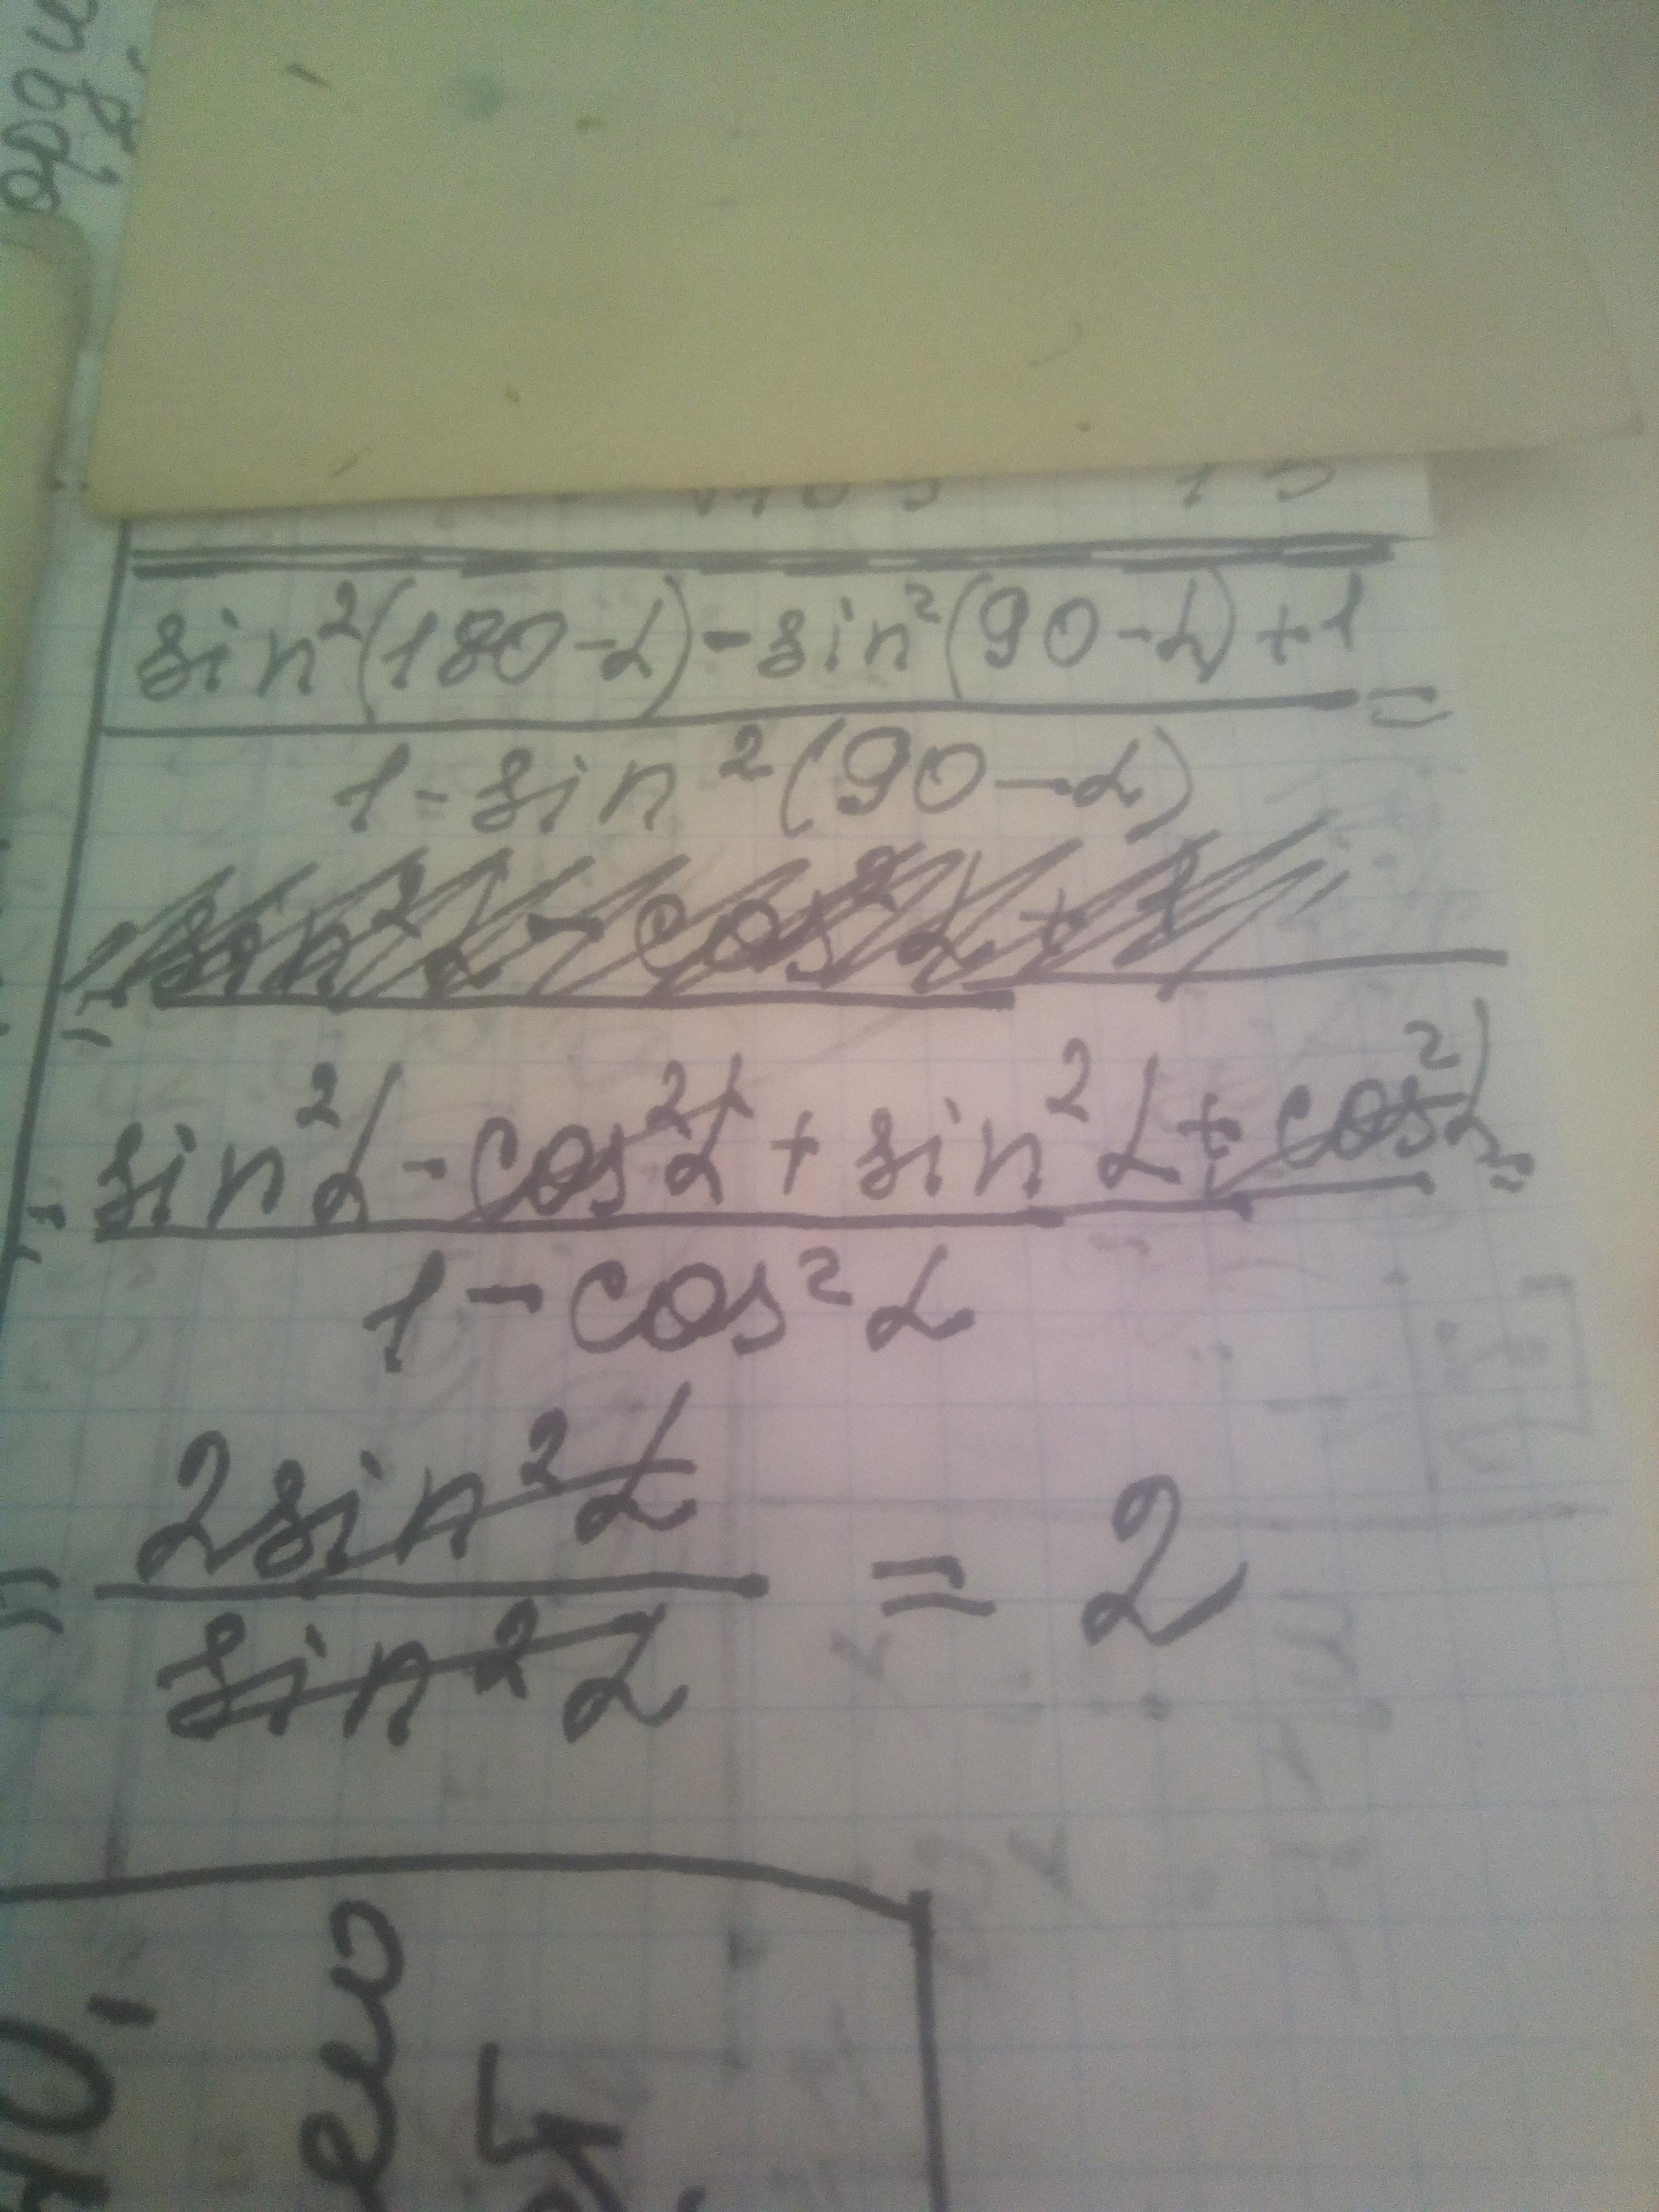 sin²(180-α)-sin²(90-α)+1 =
1-sin²(90-α)
= sin²α-cos²α+1
= sin²α-cos²α+sin²α+cos²α =
1-cos²α
= 2sin²α = 2
sin²α